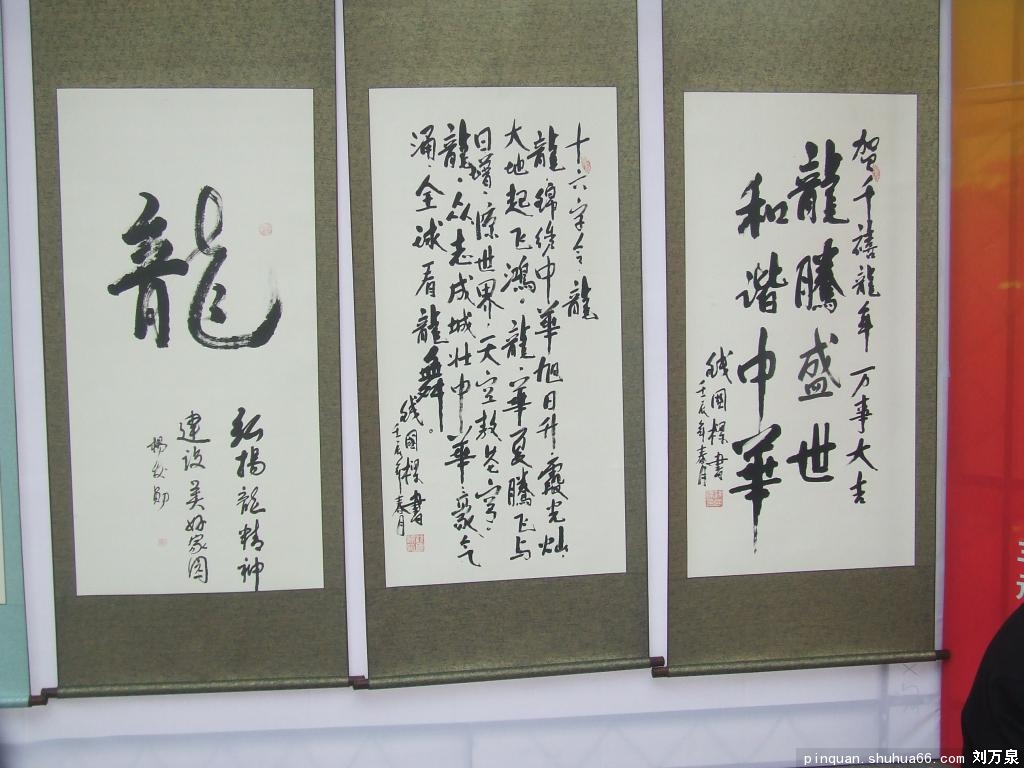 賀千禧龍年 万事大吉
龍騰盛世
和諧中華
國樑書
壬辰年春月
十六字令·龍
龍錦绣中華旭日升，霞光灿，
大地起飞鸿。龍，華夏騰飞与
日增，惊世界，天空敖苍穹。
龍，众志成城壮中華，豪气
涌，全球看龍舞。
國樑書
壬辰年春月
龍
弘揚龍精神
建设美好家園
pinquan.shuhua66.com 刘万泉